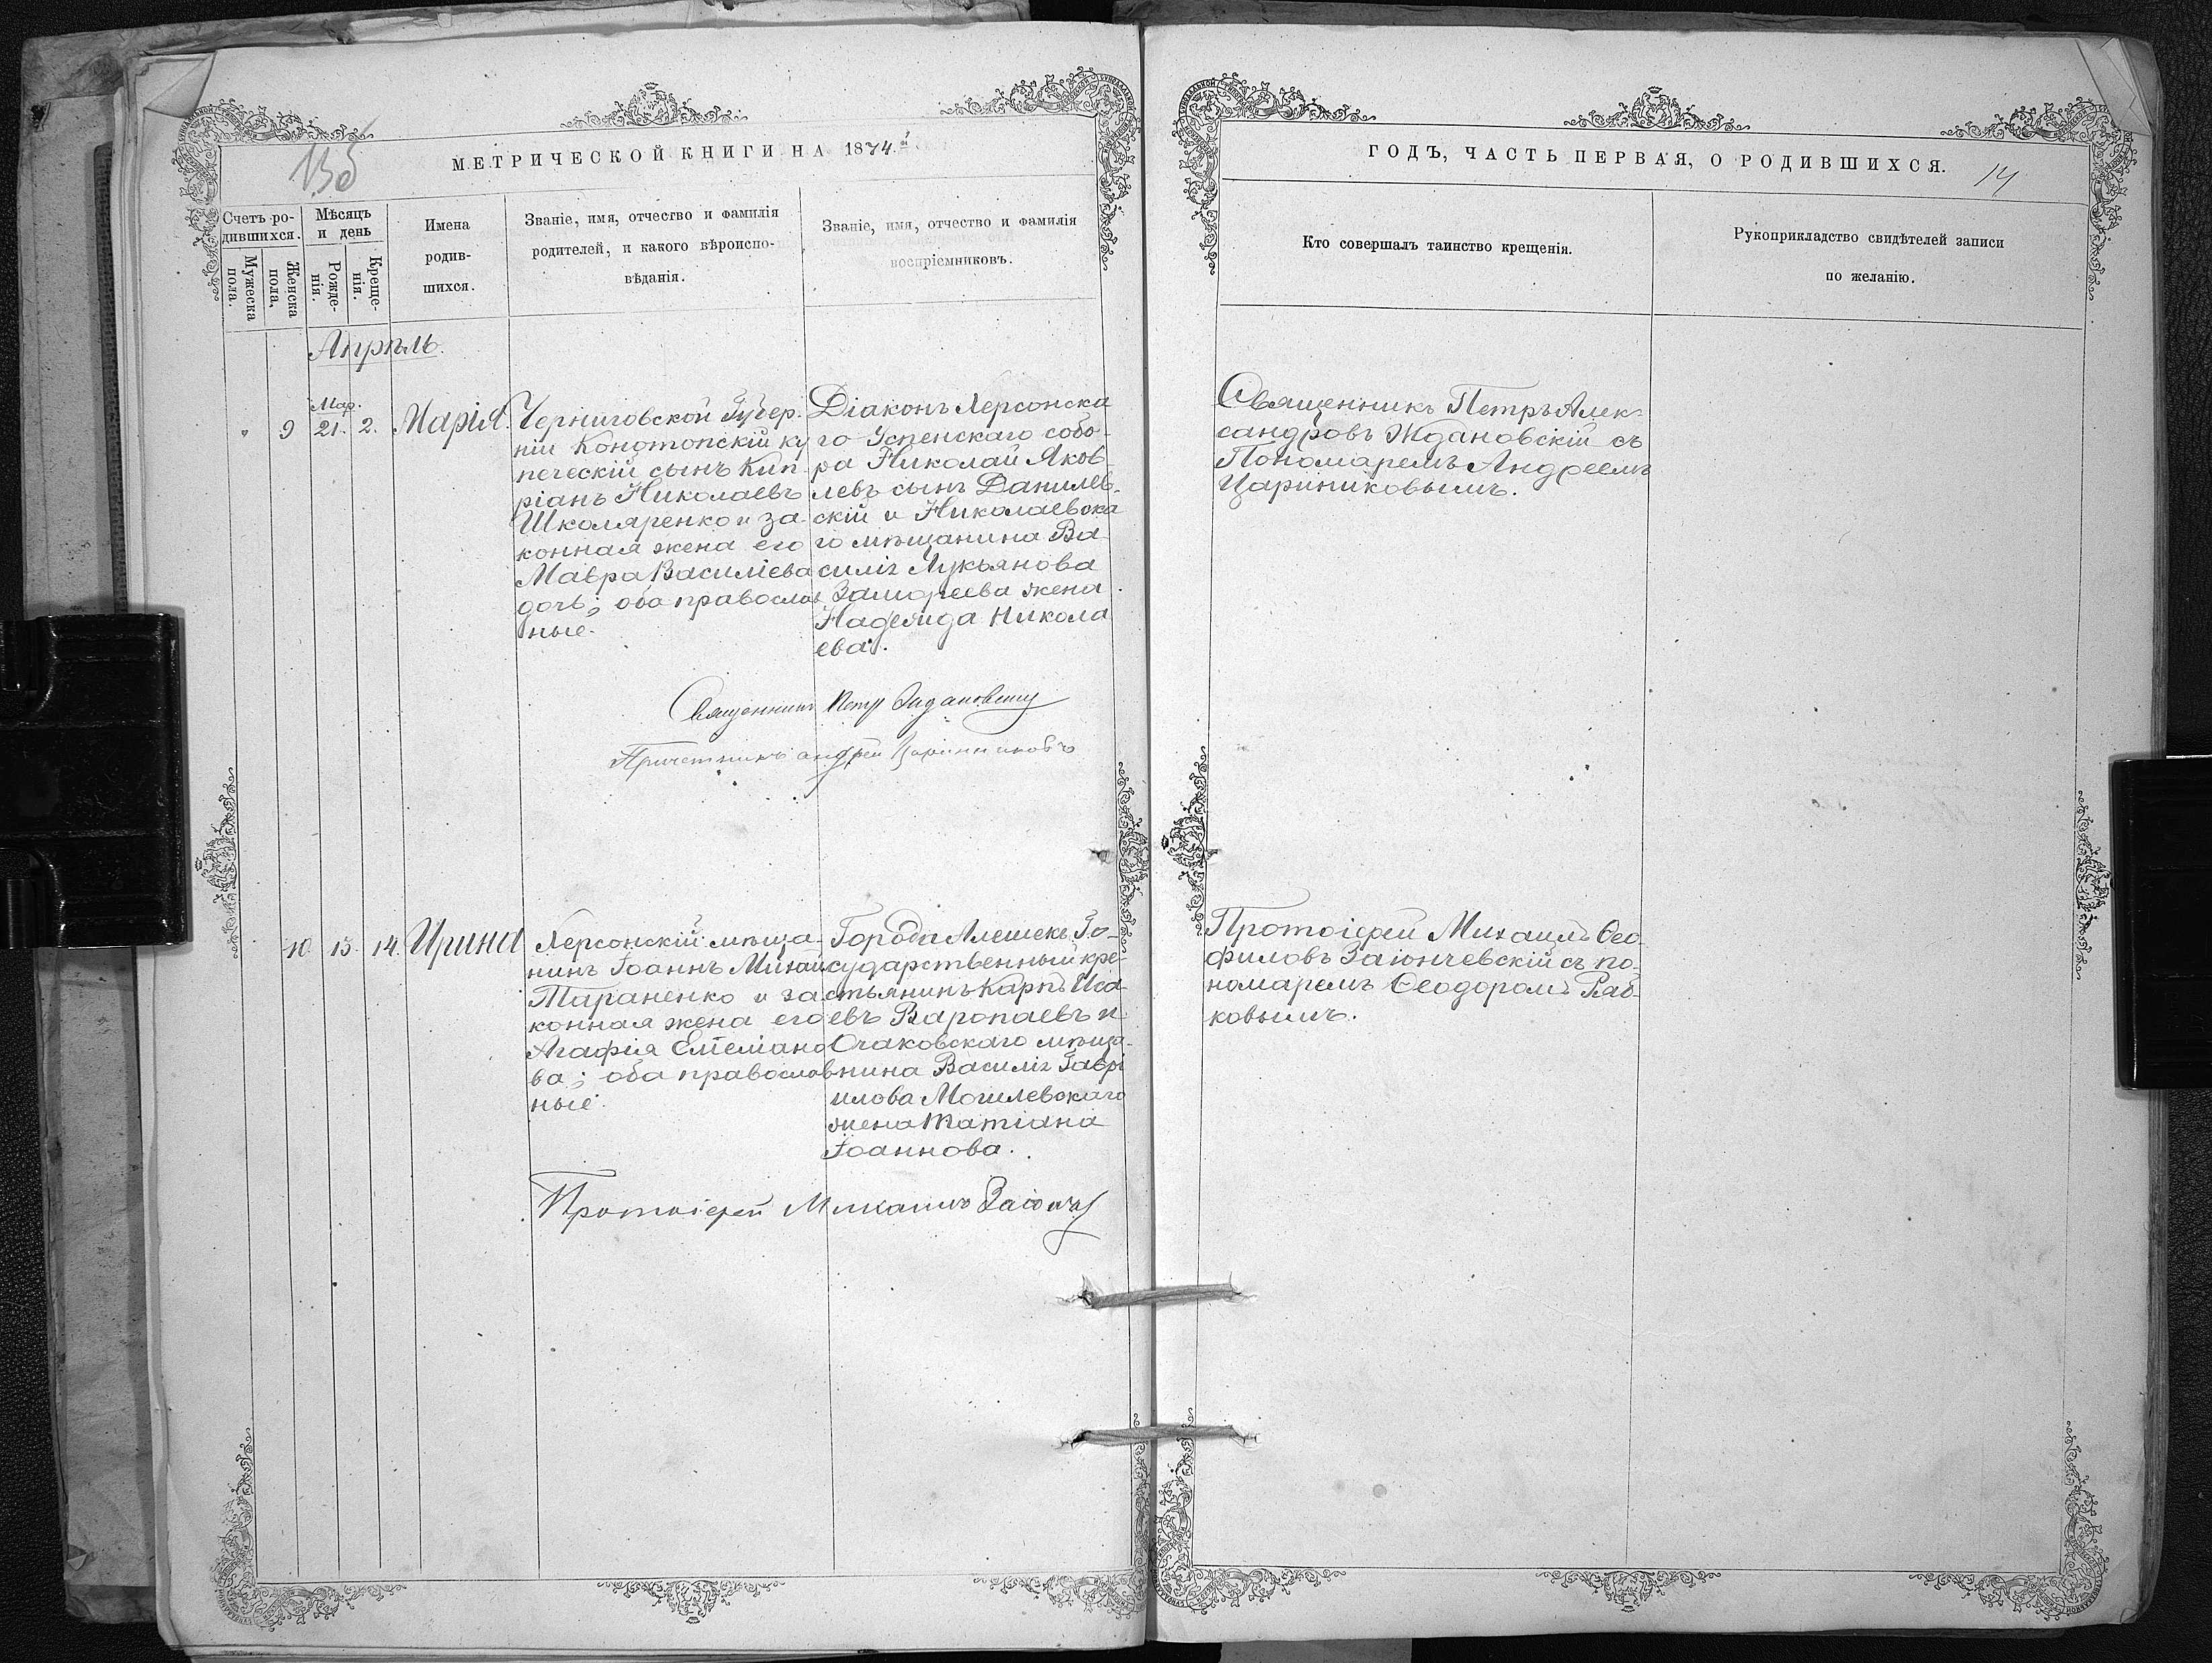 МЕТРИЧЕСКОЙ КНИГИ НА 1874й
Счетъ ро-
дившихся.
Мужеска
пола.
Женска
пола,
Мѣсяцъ
и день
Рожде-
нія.
Креще-
нія.
Имена
родив-
шихся.
Званіе, имя, отчество и фамилія
родителей, и какого вѣроиспо-
вѣданія.
Званіе, имя, отчество и фамилія
воспріемниковъ.
Апрѣль.
9
Мар.
21.
2.
Марія.
Черниговской Губер-
ніи Конотопскій ку
печескій сынъ Кип
ріанъ Николаевъ
Школяренко и за-
конная жена его
Мавра Василіева
дочь; оба православ
ные.
Діаконъ Херсонска
го Успенскаго собо-
ра Николай Яков
левъ сынъ Данилев-
скій и Николаевска
го мѣщанина Ва-
силія Лукьянова
жена
Надежда Никола
ева.
Священникъ Петръ Ждановскій
Причетникъ Андрей Цариниковъ
10
13
14.
Ирина
Херсонскій мѣща-
нинъ Іоаннъ Михай
Тараненко и за
конная жена его
Агафія Емеліано
ва; оба православ
ные.
Города Алешекъ Го-
сударственный кре-
стьянинъ Карпъ Иса-
евъ Варопаевъ и
Очаковскаго мѣща-
нина Василія Гаврі
илова Могилевскаго
жена Татіана
Іоаннова.
Протоіерей Михаилъ
ГОДЪ, ЧАСТЬ ПЕРВАЯ, О РОДИВШИХСЯ.
14
Кто совершалъ таинство крещенія.
Рукоприкладство свидѣтелей записи
по желанію.
Священникъ Петръ Алек-
сандровъ Ждановскій съ
Пономаремъ Андреемъ
Цариниковымъ.
Протоіерей Михаилъ Ѳео-
филовъ Заіончевскій съ по-
номаремъ Ѳеодоромъ Раб-
ковымъ.